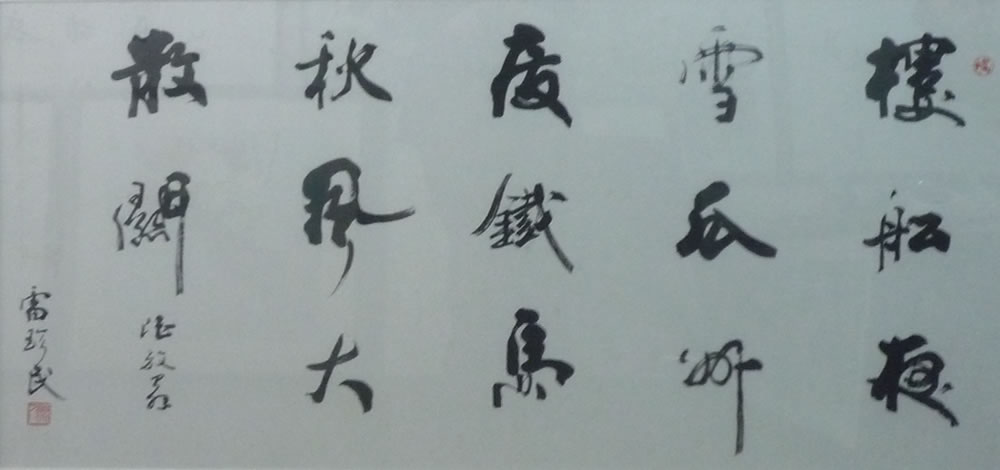 樓船夜
雪瓜州
度鐵馬
秋風大
散關
陸放翁
雷珍民